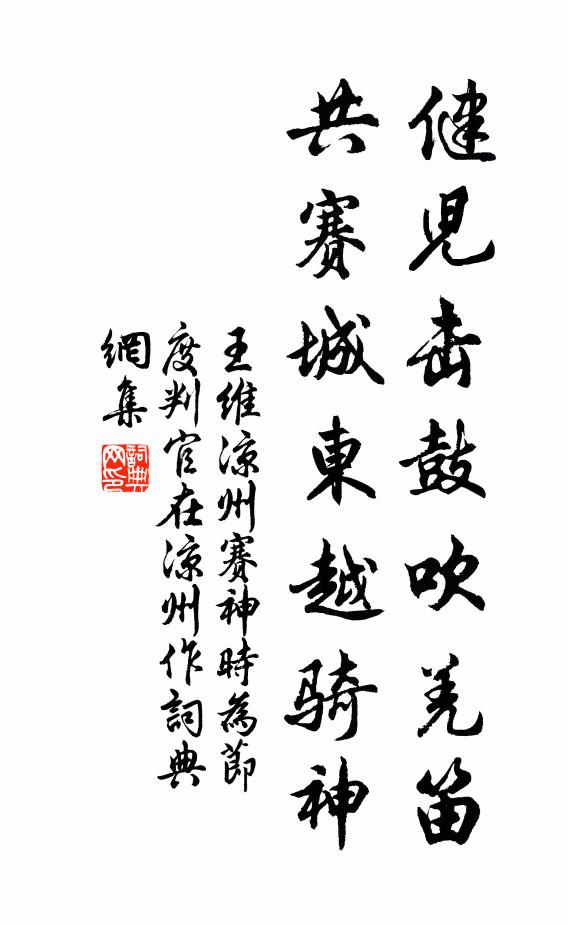 健児击鼓吹羌笛
共賽城東越騎神
王維涼州賽神時為節
度判官在涼州作詞典
網集
詞典网印